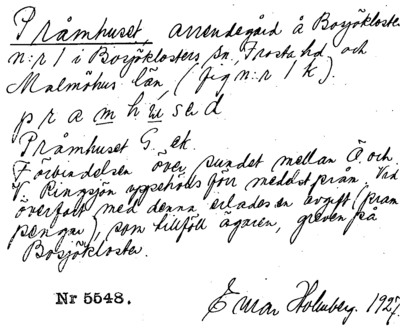 Pråmhuset, arrendegård å Bosjökloster
n:r 1 i Bosjöklosters sn, Frosta hd och
Malmöhus län, (fig n:r 1 k).
Pråmhuset G. ek.
Förbindelsen över sundet mellan Ö. och
V. Ringsjön uppehölls förr medelst pråm. Vid
överfart med denna erlades en avgift (pråm
pengar), som tillföll ägaren, greven på
Bosjökloster.
Nr 5548.
Einar Holmberg. 1927.